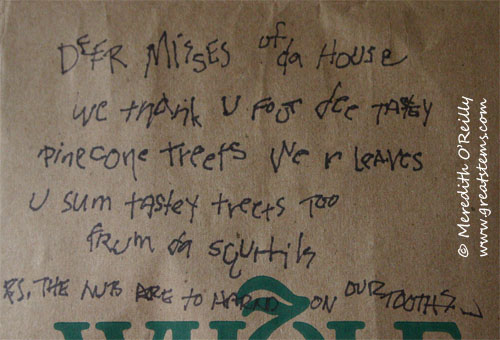 DEER MISSES of da HOUSE
we thank U four dee TASTEY
pinecone treets We r leaves
U sum tastey treets TOO
frum da squrtils
P.S. THE NUTS ARE TO HARD ON OUR TOOTHS
WHOLE
© Meredith O'Reilly
www.greatstems.com